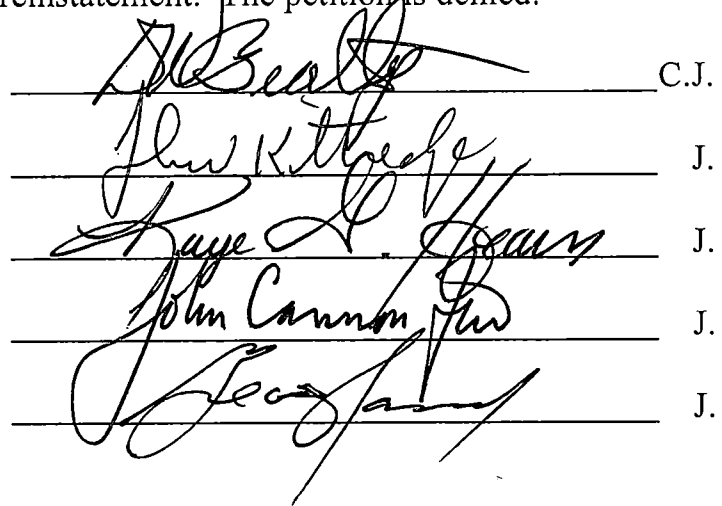 reinstatement. The petition is denied.
D W Beatty C.J.
John Kittredge J.
Kaye G. Hearn J.
John Cannon Few J.
J.